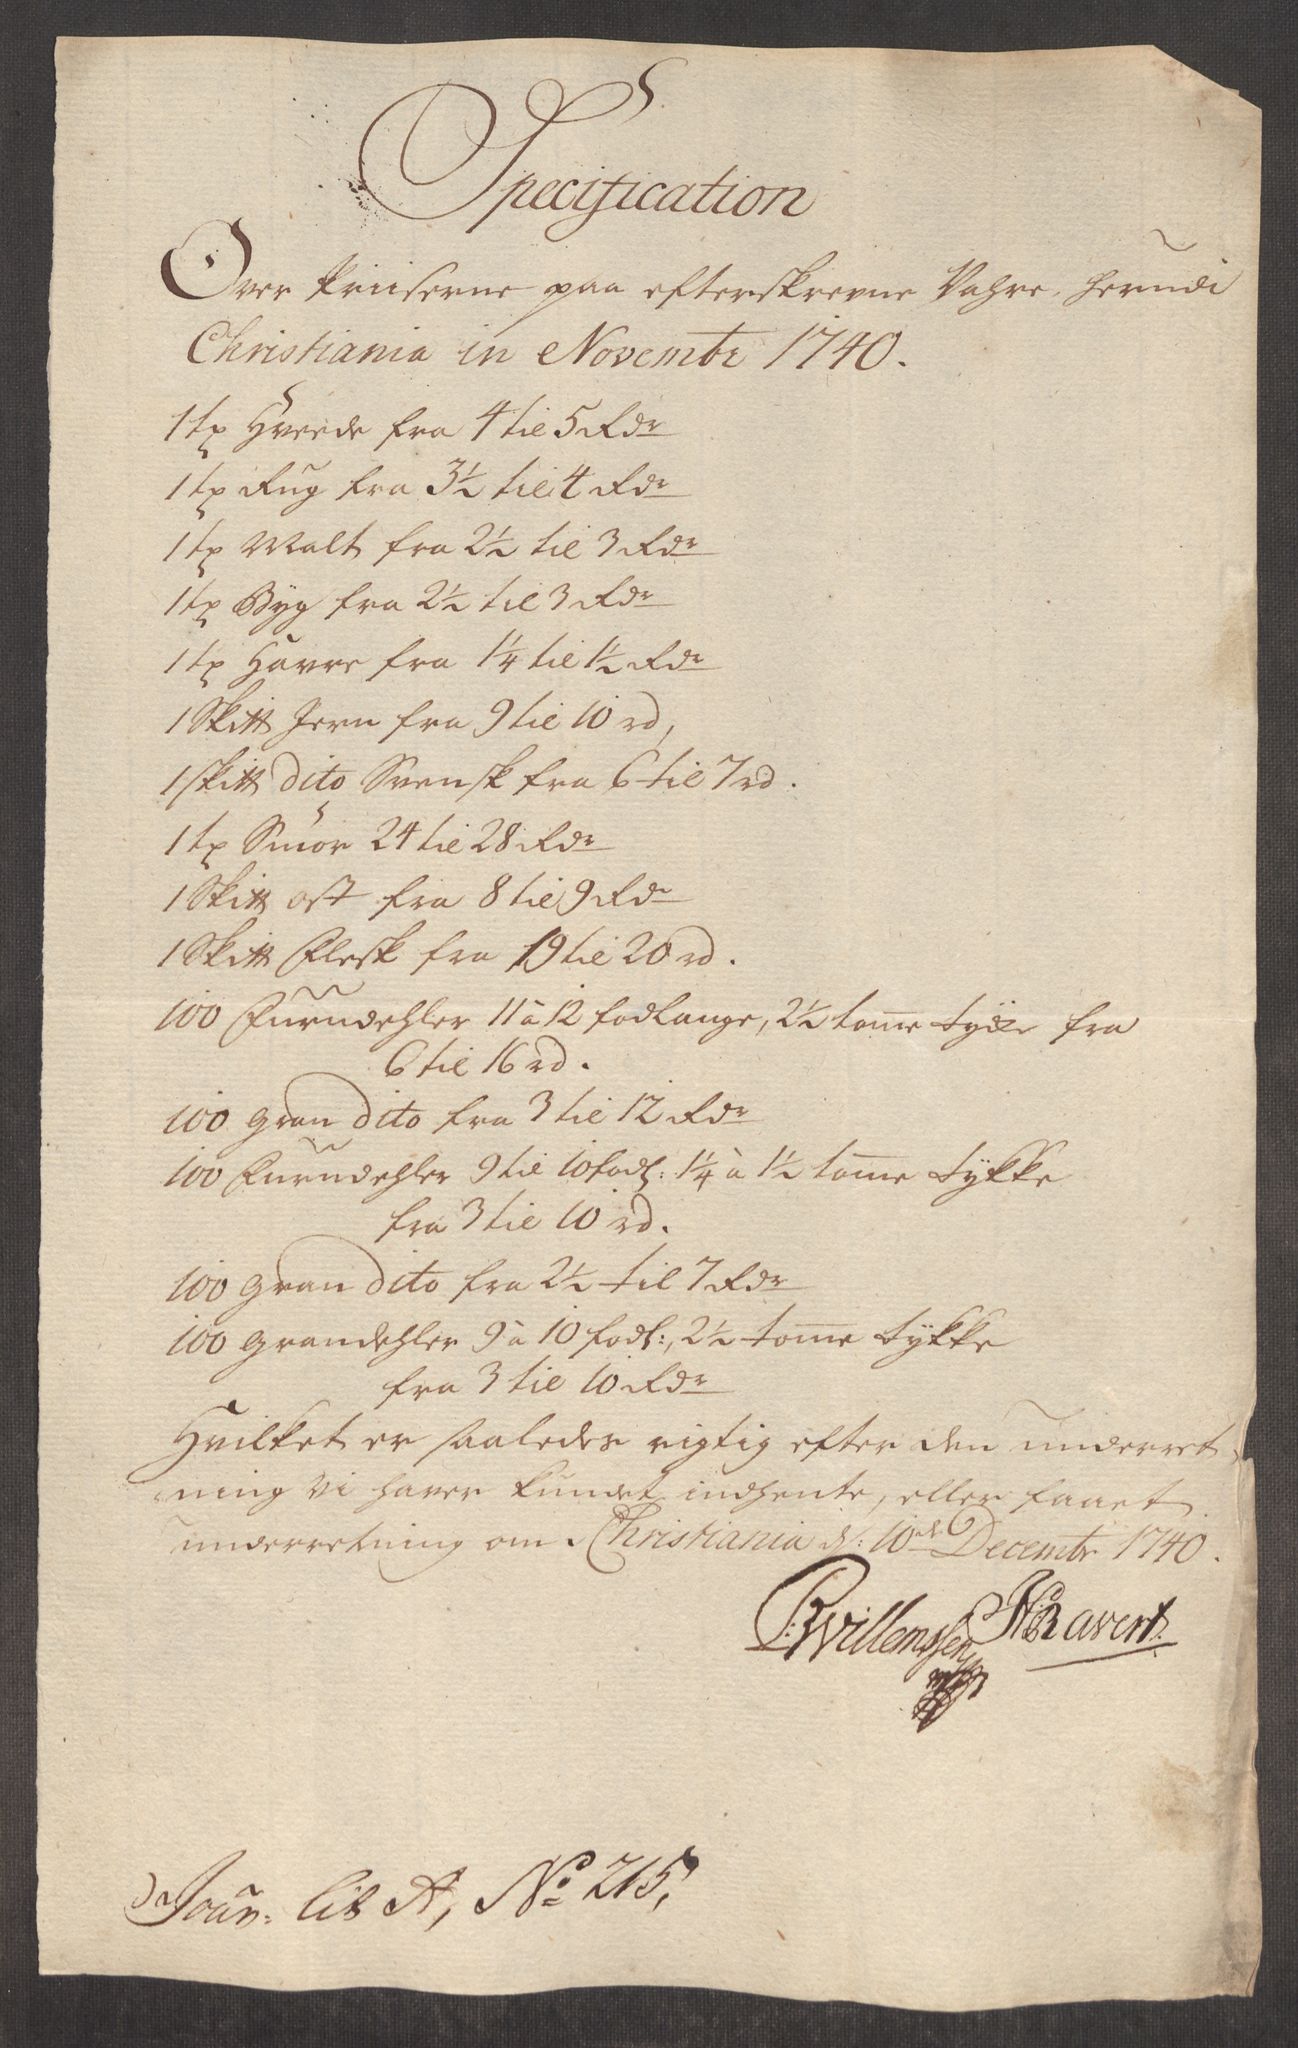 Specification
Over Priiserne paa efterskrevne Vahre, herudi
Christiania in Novembr 1740.
1 tø Hveede fra 4 til 5 Rdr
1 tø Rug fra 3½ til 4 Rdr
1 tø Malt fra 2½ til 3 Rdr
1 tø Byg fra 2½ til 3 Rdr
1 tø Havre fra 1¼ til 1½ Rdr
1 Skitt Jern fra 9 til 10 rd,
1 skitt dito Svensk fra 6 til 7 rd.
1 tø Smör 24 til 28 Rdr
1 Skitt ost fra 8 til 9 Rdr
1 Skitt Flesk fra 19 til 20 rd.
100 Furudehler 11 à 12 fod lange, 2½ tome tyke fra
6 til 16 rd.
100 gran dito fra 3 til 12 Rdr
100 Furudehler 9 til 10 fodl: 1¼ à 1½ tome tykke
fra 3 til 10 rd.
100 gran dito fra 2½ til 7 Rdr
100 grandehler 9 à 10 fodl:, 2½ tome tykke
fra 3 til 10 Rdr
Hvilket er saaledes rigtig efter den underret-
ning vi haver kundet indhente, eller faaet
underretning om. Christiania d: 10de Decembr 1740.
Willemssen HRavert.
Jour. Lit A, No 215,